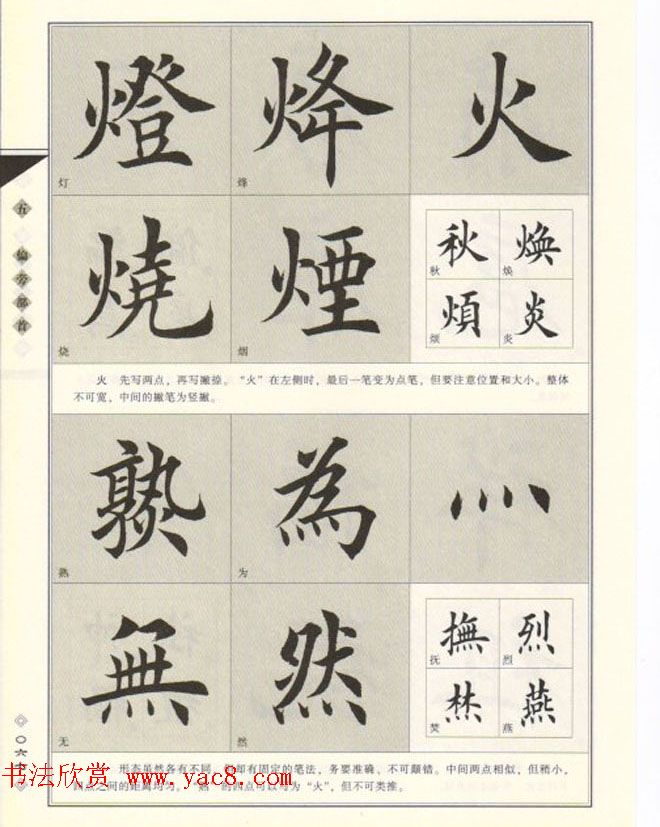 燈 烽 火
灯 烽
燒 煙 秋 煥
烧 烟 秋 焕
煩 炎
烦 炎
火 先写两点，再写撇捺。“火”在左侧时，最后一笔变为点笔，但要注意位置和大小。整体
不可宽，中间的撇笔为竖撇。
熟 為 灬
熟 为
無 然 撫 烈
无 然 抚 烈
焚 燕
焚 燕
形态虽然各有不同，但却有固定的笔法，务要准确，不可颠错。中间两点相似，但稍小，
四点之间的距离均匀。“熟”的四点可以写为“火”，但不可类推。
五 偏旁部首
书法欣赏 www.yac8.com